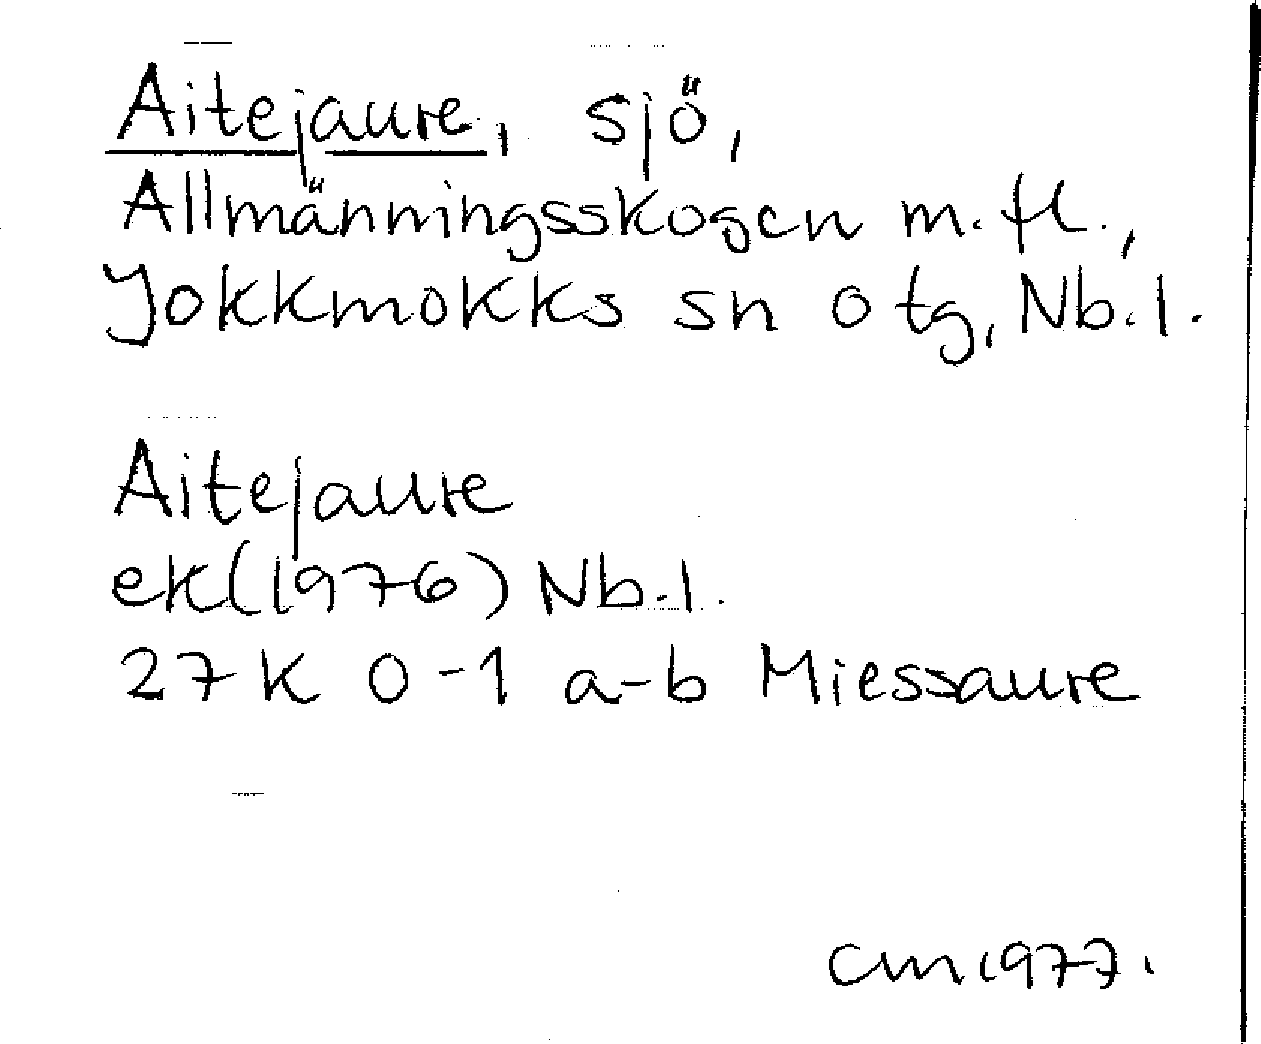 Aitejaure, sjö,
Allmänningsskogen m.fl.,
Jokkmokks sn o tg, Nb.l.
Aitejaure
ek(1976) Nb.l.
27 K 0-1 a-b Miessaure
CM 1977.